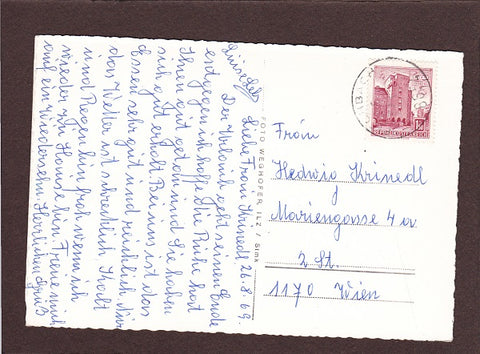 26.8.69.
Liebe Frau Krinedl
Der Urlaub geht seinem Ende
entgegen ich hoffe Die Reise hat
Ihnen gut getan und Sie haben
sich gut erholt. Bei uns ist das
Essen sehr gut und reichlich. Nur
das Wetter ist schrecklich kalt
und Regen bin froh wenn ich
wieder zu Hause bin. Freue mich
auf ein Wiedersehn. Herzlichen Gruß
FOTO WEGHOFER, ILZ / Stmk
REPUBLIK ÖSTERREICH
Fräu
Hedwig Krinedl
Mariengasse 4 a
2 St.
1170 Wien